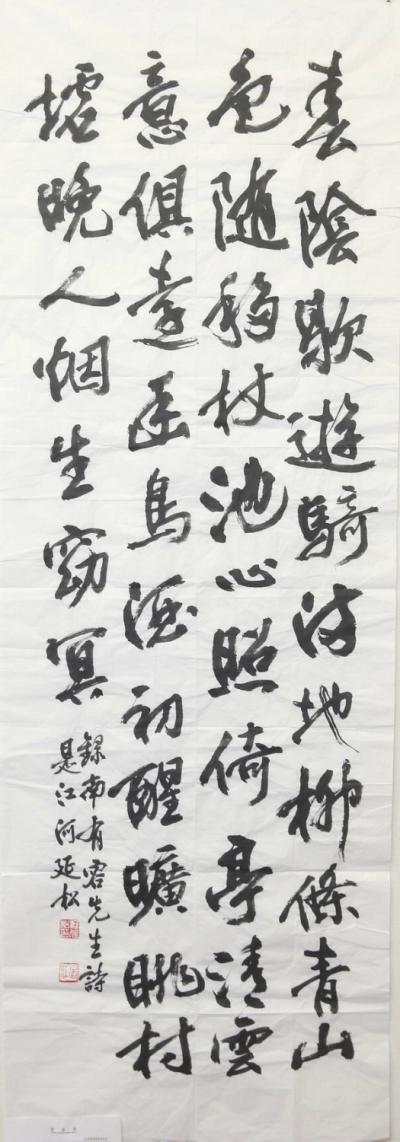 春陰歇遊騎地柳條青山
色隨移杖池心照倚亭清雲
意俱遠幽鳥酒初醒曠眺村
墟晚人烟生窈冥
錄南有容先生詩
是江河延松